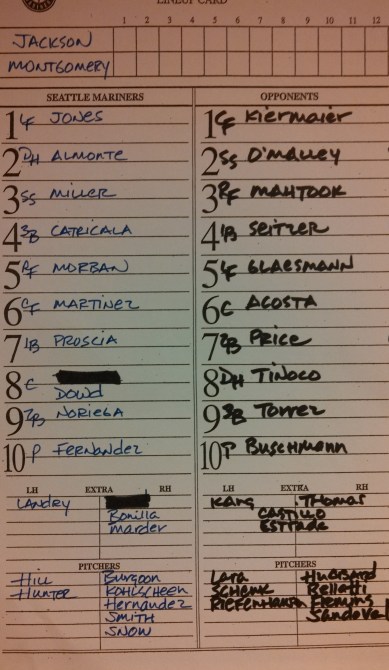 LINEUP CARD
1 2 3 4 5 6 7 8 9 10 11 12
JACKSON
MONTGOMERY
SEATTLE MARINERS
1 LF JONES
2 DH ALMONTE
3 SS MILLER
4 3B CATRICALA
5 RF MORBAN
6 CF MARTINEZ
7 1B PROSCIA
8 C
DOWD
9 2B NORIEGA
10 P FERNANDEZ
LH EXTRA RH
LANDRY
Bonilla
Marder
PITCHERS
Hill Burgoon
Hunter KOHLSCHEEN
Hernandez
Smith
SNOW
OPPONENTS
1 CF Kiermaier
2 SS O'MALLEY
3 RF MAHTOOK
4 1B SEITZER
5 LF GLAESMANN
6 C ACOSTA
7 2B PRICE
8 DH TINOCO
9 3B Torrez
10 P Buschmann
LH EXTRA RH
KANG THOMAS
CASTILLO
ESTRADA
PITCHERS
Lara Hubbard
SCHENK Bellatti
RIEFENHAUSER Fleming
Sandoval